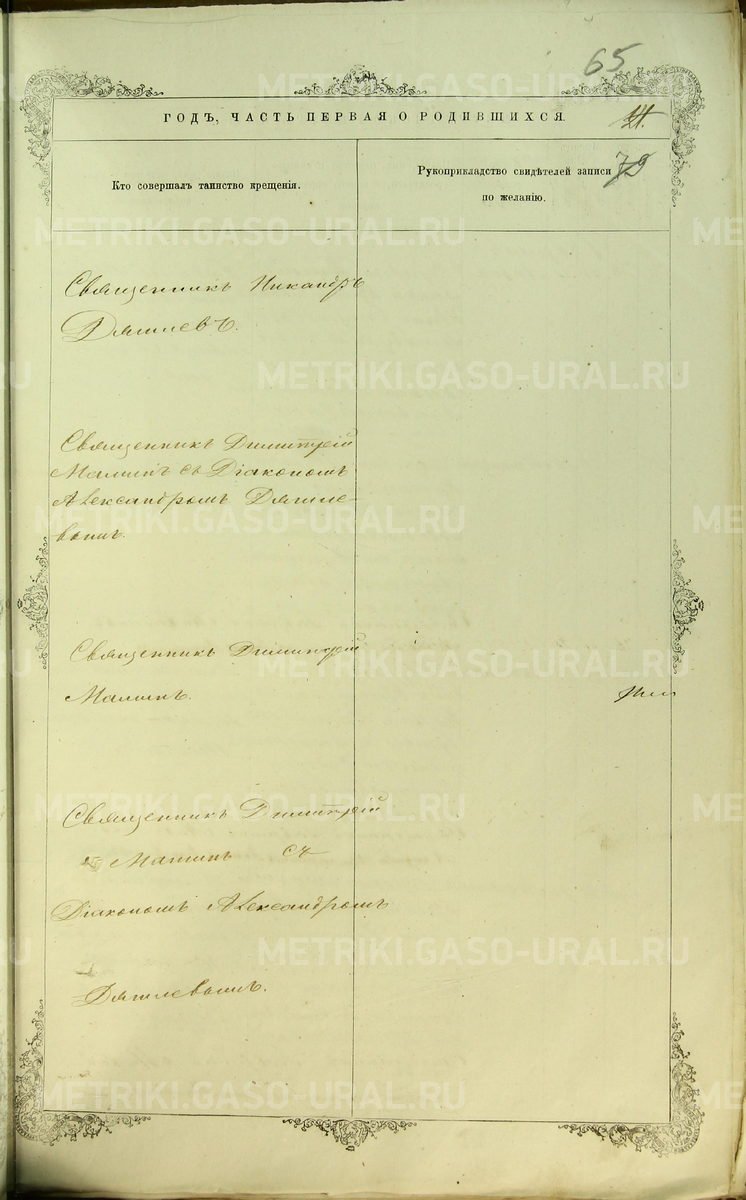 65
ГОДЪ, ЧАСТЬ ПЕРВАЯ О РОДИВШИХСЯ.
21.
Кто совершалъ таинство крещенія.
Рукоприкладство свидѣтелей записи
79
по желанію.
Священникъ Никандръ
Дягилевъ.
Священникъ Димитрій
Малинъ съ Діакономъ
Александромъ Дягиле-
вымъ.
Священникъ Димитрій
Малинъ.
Священникъ Димитрій
Малинъ съ
Діакономъ Александромъ
Дягилевымъ.
METRIKI.GASO-URAL.RU